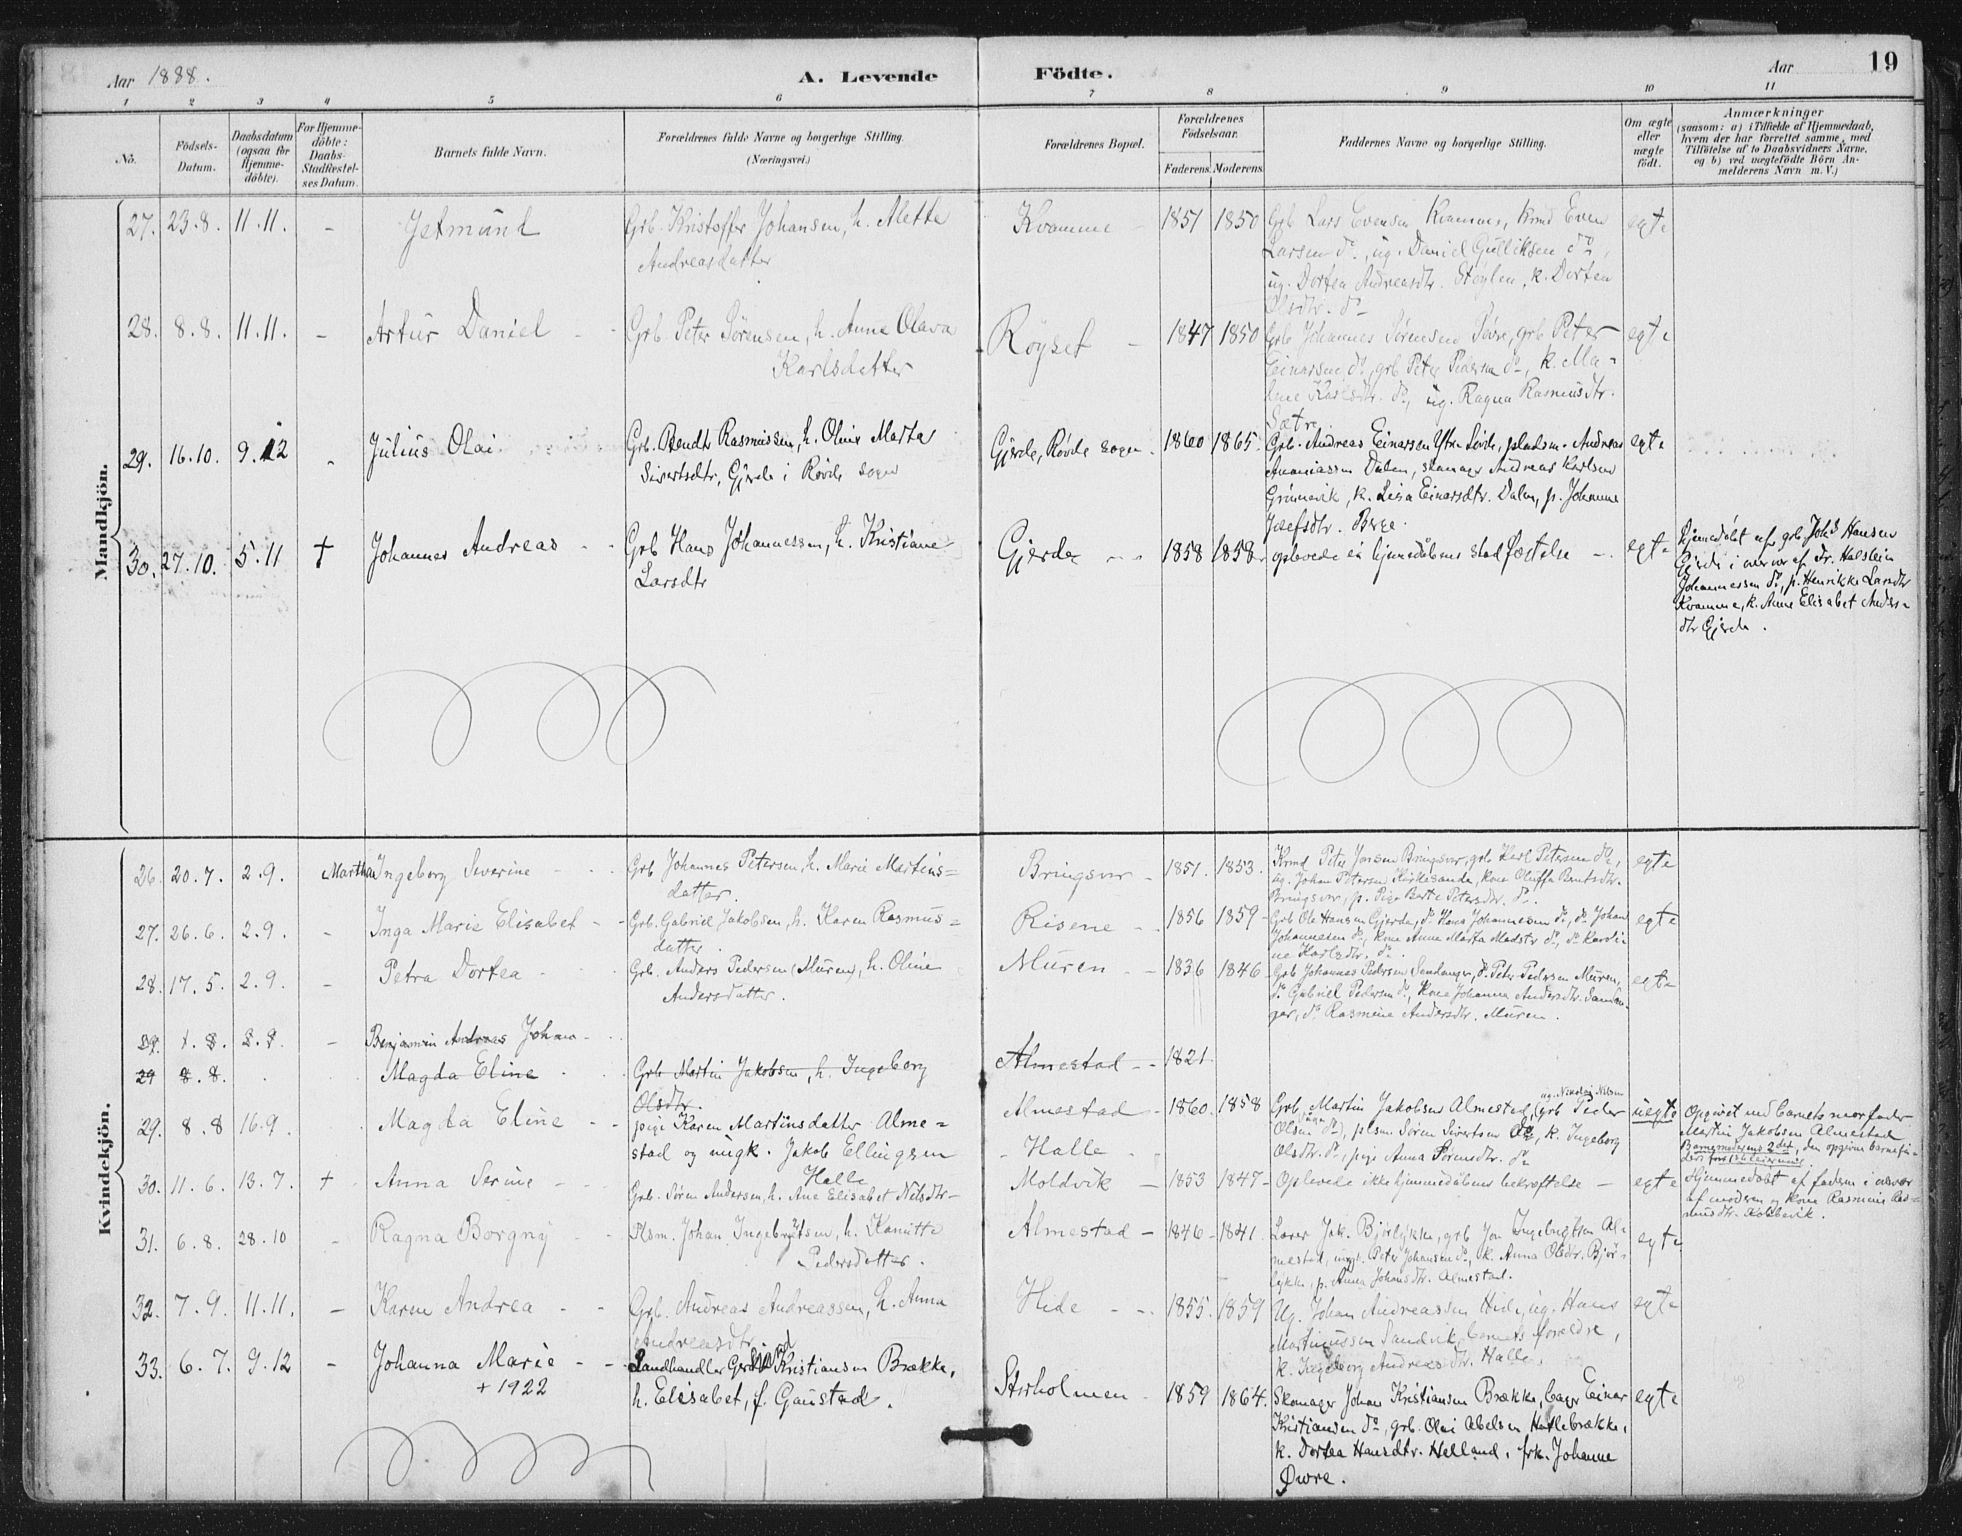 Aar 1888.
A. Levende Födte.
Aar
19
1 2 3 4 5 6 7 8 9 10 11
No.
Födsels-Datum.
Daabsdatum (ogsaa for Hjemme-döbte).
For Hjemme-döbte: Daabs-Stadfæstel-ses Datum.
Barnets fulde Navn.
Forældrenes fulde Navne og borgerlige Stilling. (Næringsvei.)
Forældrenes Bopæl.
Forældrenes Födselsaar.
Faderens. Moderens.
Faddernes Navne og borgerlige Stilling.
Om ægte eller uægte födt.
Anmærkninger
(saasom: a) i Tilfælde af Hjemmedaab, hvem der har forrettet samme, med Tilföielse af to Daabsvidners Navne, og b) ved uægtefödte Börn An-melderens Navn m. V.)
Mandkjön.
27. 23.8. 11.11. - Jetmund Grb. Kristoffer Johansen, h. Alette
Andreasdatter
Kvamme - 1851 1850 Grb Lars Evensen Kvamme, kmd Even
Larsen do., ug. Daniel Gulliksen do,
ug. Dortea Andreasdtr. Støylen, k. Dortea
Olsdtr. do
egte
28. 8.8. 11.11. - Artur Daniel - Grb Peter Sørensen, h. Anne Olava
Karlsdatter
Røyset - 1847 1850 Grb Johannes Sørensen, grb Peter
Einarsen do, grb Peter Pedersen do, k. Ma-
lene Karlsdtr. do, ug. Ragna Rasmusdtr.
Sætre
egte
29. 16.10. 9.12 - Julius Olai Grb. Bendt Rasmussen, h. Oline Marta
Sivertsdtr, Gjerde i Røvde sogn
Gjerde, Røvde sogn - 1860 1865. Grb. Andreas Einarsen Ytre, pladsm. Andreas
Ananiassen Dalen, skomager Andreas Karlsen
k. Lisa Einarsdtr. Dalen, p. Johanne
Josefsdtr. Berge.
egte
30. 27.10. 5.11 † Johannes Andreas - - Grb Hans Johannessen, h. Kristiane
Larsdtr
Gjerde - - 1858 1858 oplevede ei hjemmedåbens stadfæstelse - egte
Hjemmedøbt af grb Johs Hansen
Gjerde i nærvær af Halstein
Johannessen do, p. Henrikke Larsdtr
Kvamme, k. Anne Elisabet Anders-
dtr Gjerde.
Kvindekjön.
26. 20.7. 2.9. Martha Ingeborg Severine - - Grb Johannes Petersen, h. Marie Martins-
datter.
Bringsvor - 1851. 1853. Kmd Peter Jonsen Bringsvor, grb Karl Petersen do,
ug. Johan Petersen Kirkesande, kone Oluffa Berntsdtr.
Bringsvor, p. Pige Berte Petersdtr. do.
egte
27. 26.6. 2.9. - Inga Marie Elisabet - - Grb. Gabriel Jakobsen, h. Karen Rasmus-
datter.
Risene - 1856 1859 - Grb Ole Hansen Gjerde, do Hans Johannesen do, do Johan
Johannesen do, kone Anne Marta Madsdtr do, do Karoli-
ne Karlsdtr. do.
egte
28. 17.5. 2.9. - Petra Dortea - Grb. Anders Pedersen (Muren), h. Oline
Andersdatter.
Muren - 1836 1846 - Grb Johannes Pedersen Sandanger, do Peter Pedersen Muren,
do Gabriel Pedersen do, kone Johanna Andersdtr. Sandan-
ger, do Rasmine Andersdtr. Muren.
egte
29. 1.8. 2.9. - Benjamin Andreas Johan -
29 8.8. Magda Eline Grb Martin Jakobsen, h. Ingeborg
Olsdtr.
Almestad - - 1821
29. 8.8 16.9. Magda Eline - pige Karen Martinsdatter Alme-
stad og ungk. Jakob Ellingsen
Halle
Almestad - Halle - 1860. 1858 Grb. Martin Jakobsen Almestad, ug. Nikolai Nilsen grb Peder
Olsen do, plsm Søren Sivertsen do, k. Ingeborg
Olsdtr. do, pige Anna Sørensdtr. do
uegte
Opgivet ved barnets morfader
Martin Jakobsen Almestad
Barnemoderens 2det, den opgivne barnefa-
ders første leiermål.
30. 11.6. 13.7. † - Anna Serine - Grb. Søren Andersen, h. Ane Elisabet Nilsdtr -
Moldvik - 1853 1847 - Oplevede ikke hjemmedåbens bekræftelse - egte
Hjemmedøbt af faderen i nærvær
af moderen og kone Rasmine Ras-
musdtr. Koldevik.
31. 6.8. 28.10 - Ragna Borgny - Plsm. Johan Ingebrigtsen, h. Kanutte
Pedersdatter.
Almestad - 1846 - 1841. Lærer Jak. Bjørlykke, grb Jon Ingebrigtsen Al-
mestad, ungk. Peter Johansen do, k. Anna Olsdtr. Bjør-
lykke, p. Anna Johansdtr. Almestad.
egte
32. 7.9. 11.11. - Karen Andrea - - Grb. Andreas Andreassen, h. Anna
Andreasdtr
Hide - - 1855. 1859 Ug. Johan Andreassen Hide, ug. Hans
Martinussen Sandvik, barnets forældre,
k. Ingeborg Andreasdtr. Halle.
egte
33. 6.7. 9.12 - Johanna Marie - - Landhandler Gerhard Kristiansen Brække,
+ 1922
h. Elisabet, f. Gaustad.
Storholmen - 1859 1864. Skomager Johan Kristiansen Brække, bager Einar
Kristiansen do, grb. Olai Abelsen Hatlebrække,
k. Dortea Hansdtr. Helland, frk. Johanne
Øwre.
egte